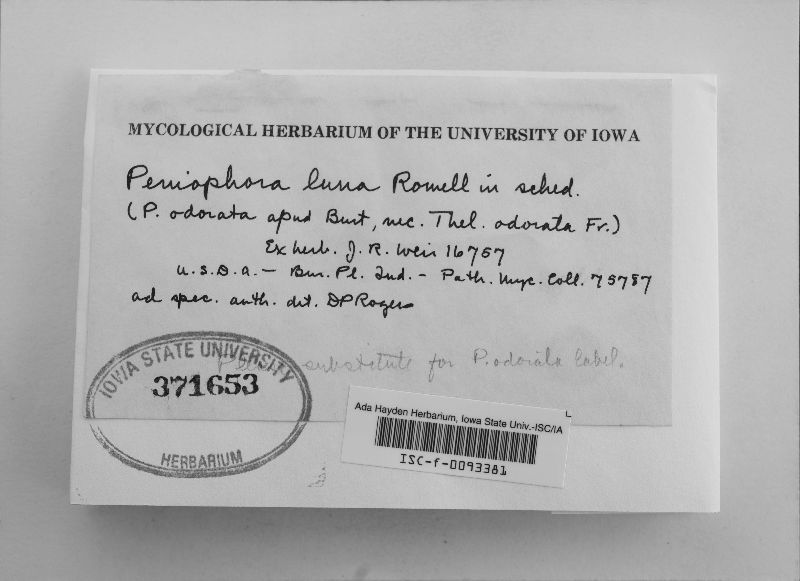 MYCOLOGICAL HERBARIUM OF THE UNIVERSITY OF IOWA
Peniophora luna Romell in sched.
(P. odorata apud Burt, nec. Thel. odorata Fr.)
Ex herb. J. R. Weir 16757
U.S.D.A. — Bur. Pl. Ind. - Path. Myc. Coll. 75787
ad spec. auth. det. DPRogers
Please substitute for P. odorata label.
IOWA STATE UNIVERSITY
371653
HERBARIUM
Ada Hayden Herbarium, Iowa State Univ.-ISC/IA
ISC-f-0093381